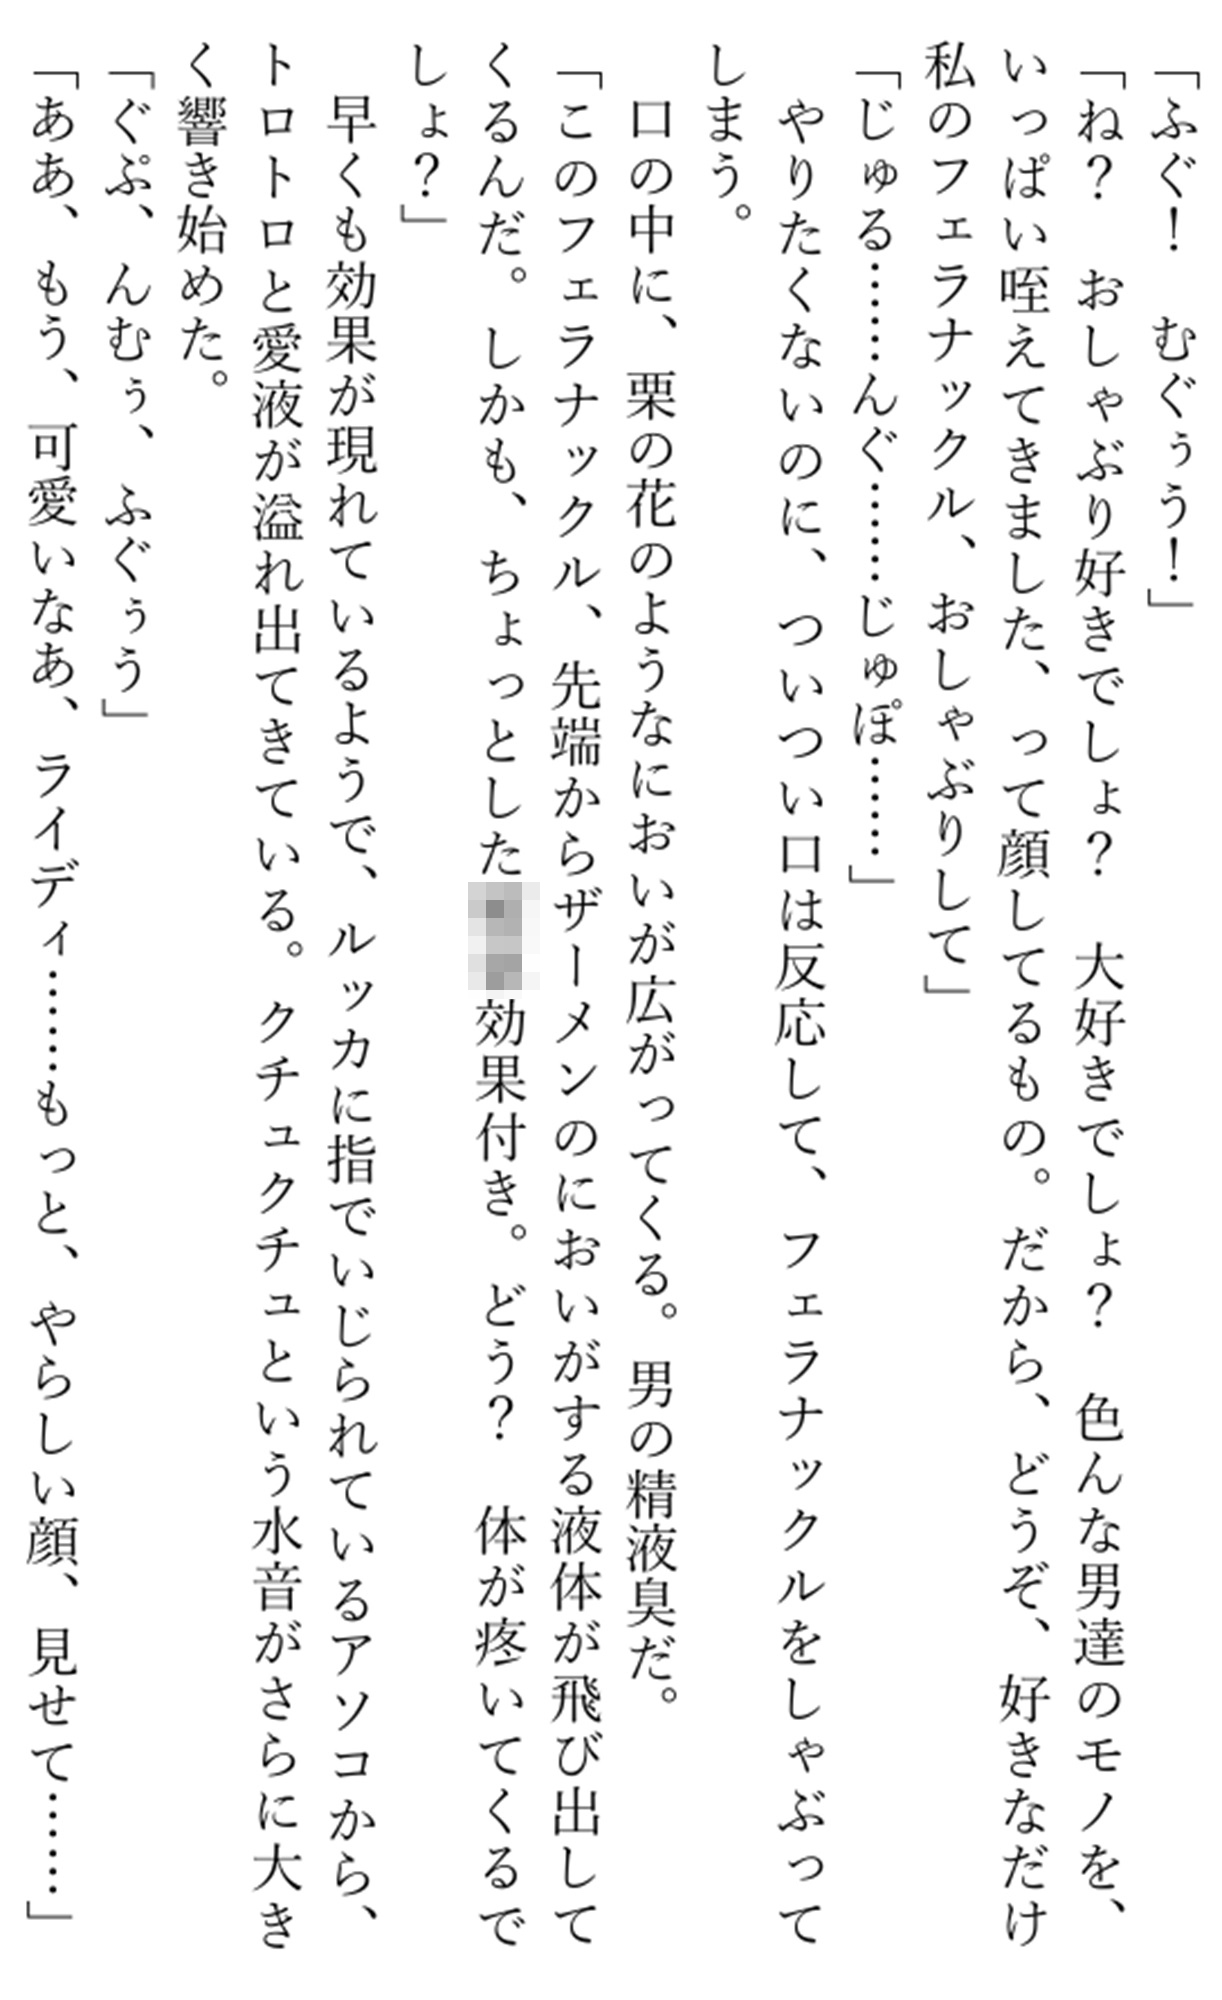 「ふぐ！　むぐぅう！」
「ね？　おしゃぶり好きでしょ？　大好きでしょ？　色んな男達のモノを、
いっぱい咥えてきました、って顔してるもの。だから、どうぞ、好きなだけ
私のフェラナックル、おしゃぶりして」
「じゅる………んぐ………じゅぽ………」
　やりたくないのに、ついつい口は反応して、フェラナックルをしゃぶって
しまう。
　口の中に、栗の花のようなにおいが広がってくる。男の精液臭だ。
「このフェラナックル、先端からザーメンのにおいがする液体が飛び出して
くるんだ。しかも、ちょっとした効果付き。どう？　体が疼いてくるで
しょ？」
　早くも効果が現れているようで、ルッカに指でいじられているアソコから、
トロトロと愛液が溢れ出てきている。クチュクチュという水音がさらに大き
く響き始めた。
「ぐぷ、んむぅ、ふぐぅう」
「ああ、もう、可愛いなあ、ライディ………もっと、やらしい顔、見せて………」